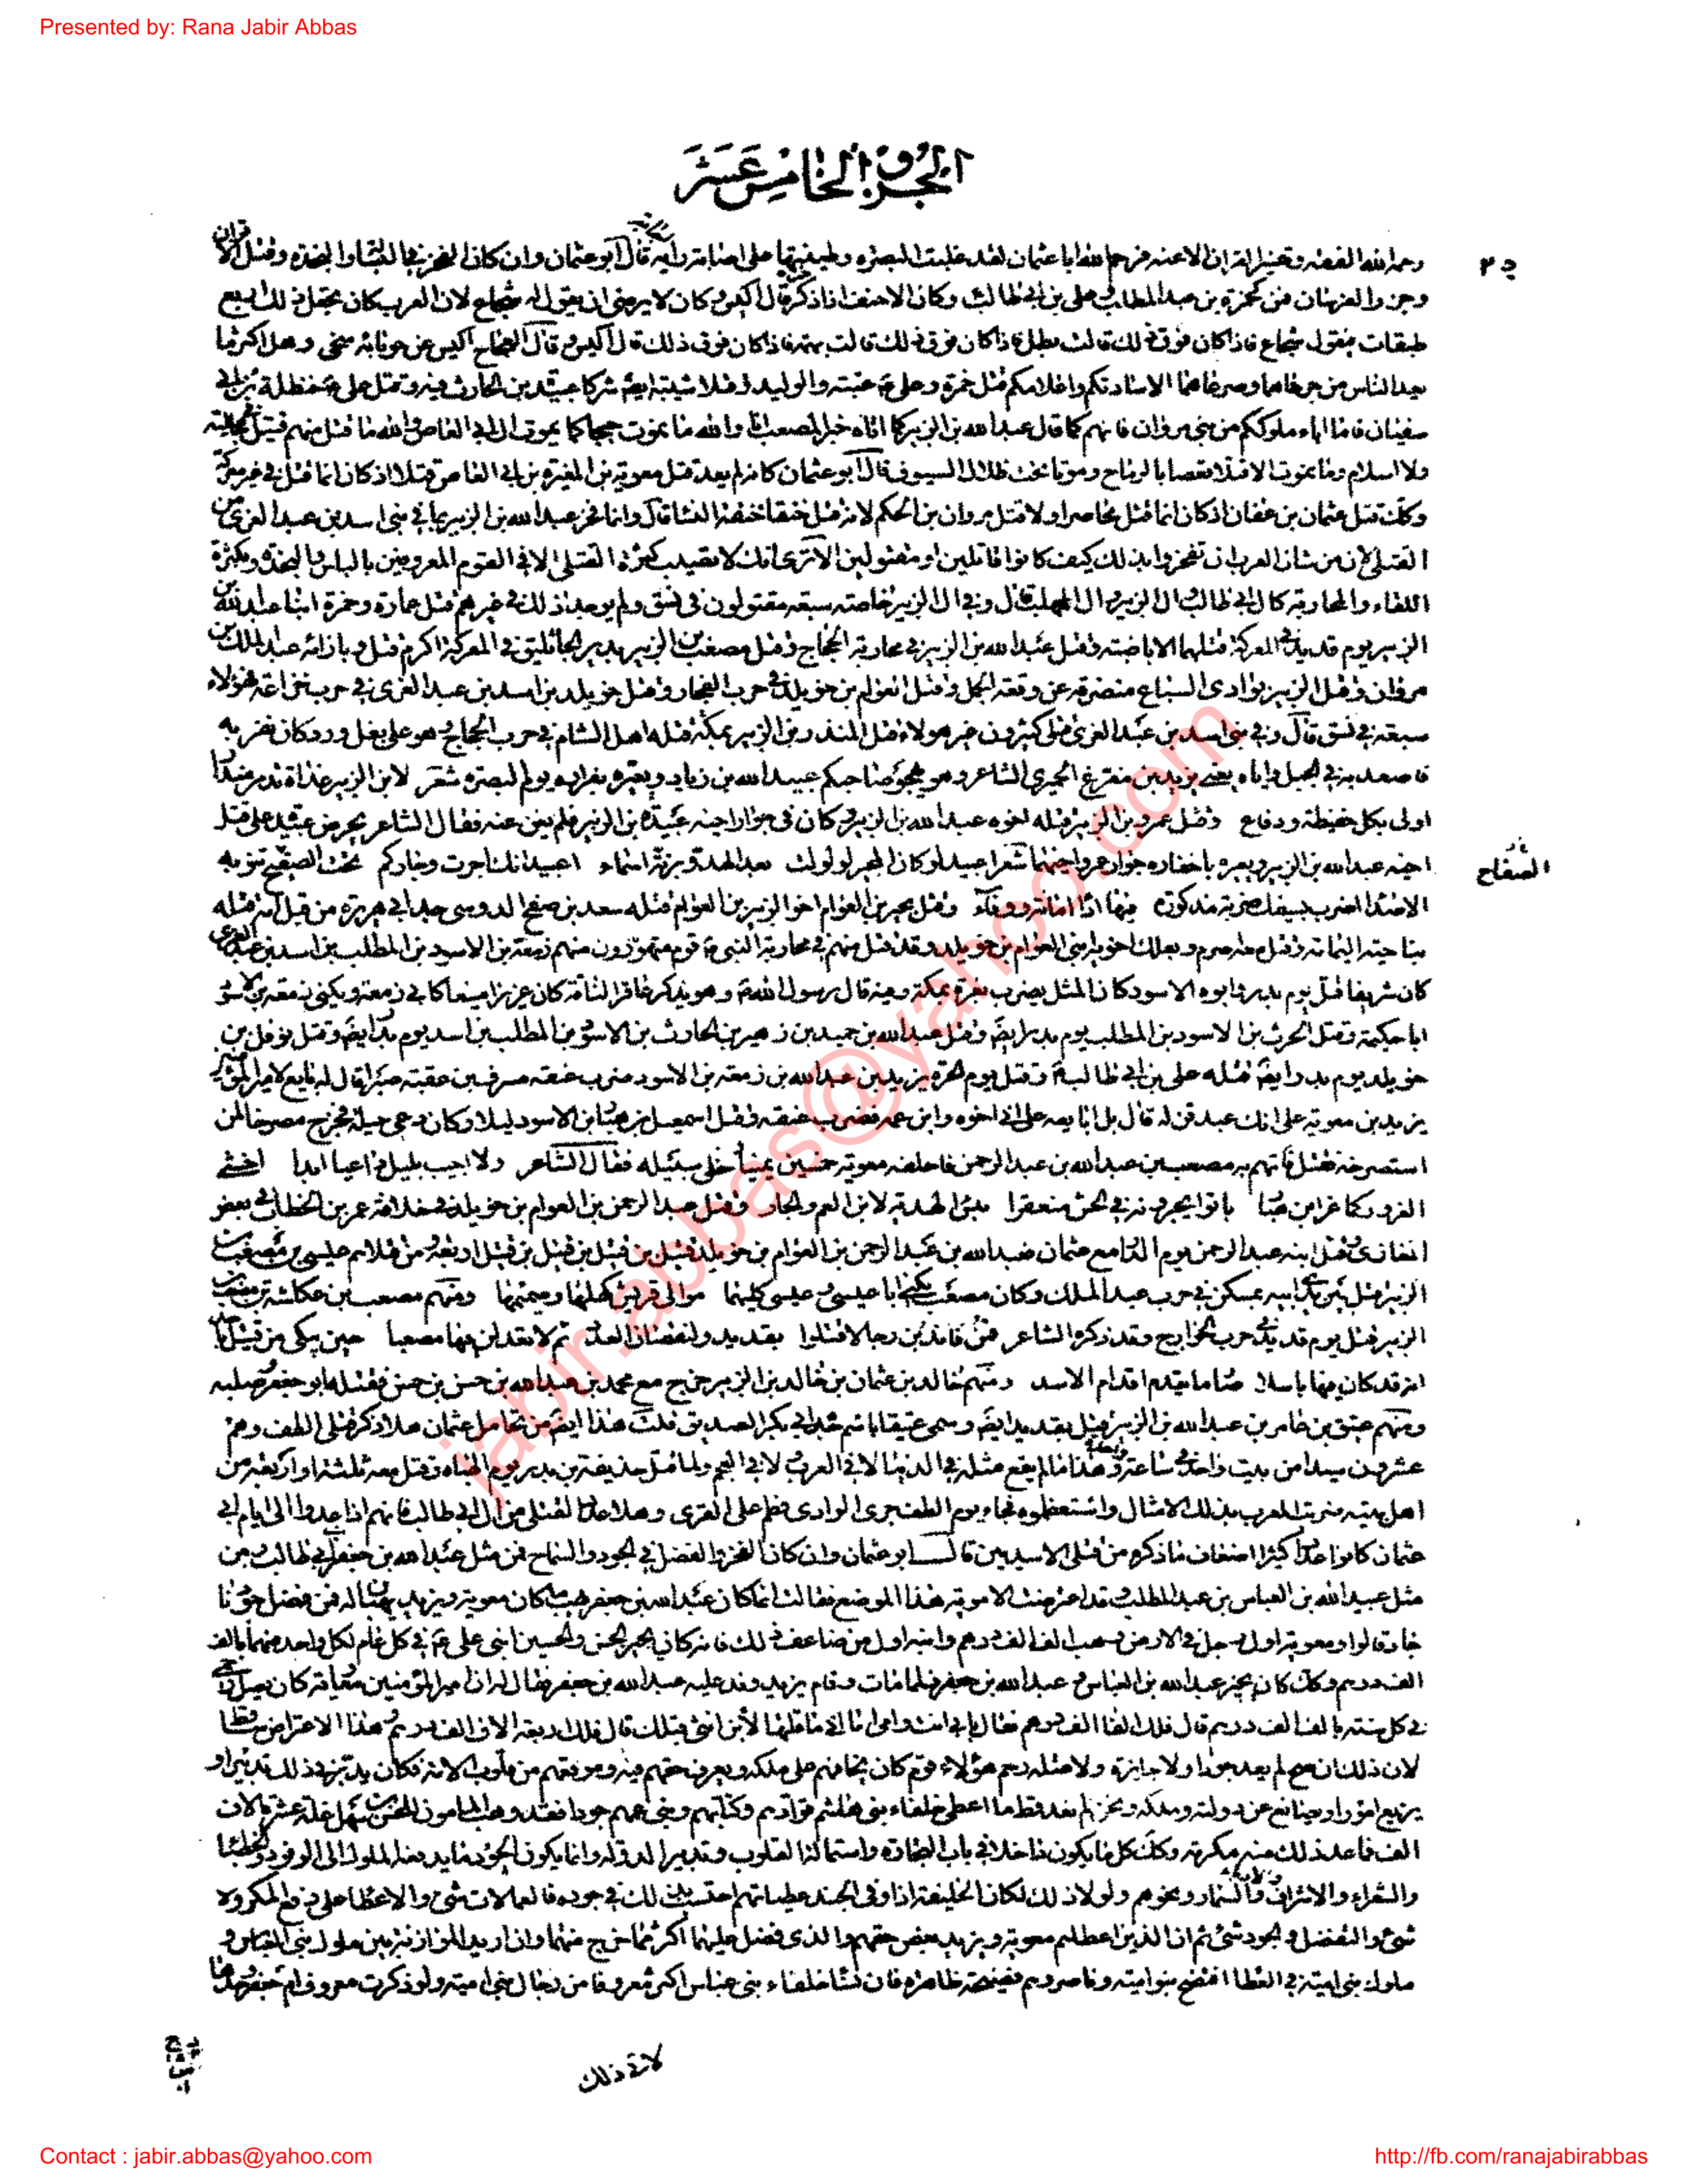 Presented by: Rana Jabir Abbas
الجزء الخامس عشر
رحمه الله الفقه وتفسير القران الا عنه فرحم الله ابا عثمان لقد غلبت البصرة وطينتها على اصابة رايه قال ابو عثمان وان كان الفخر في البسالة والنجدة وقتل الاقران
وجزر الفرسان فمن كحمزة بن عبد المطلب وعلى بن ابى طالب وكان الاحنف اذا ذكر حمزة قال اكيس وكان لا يرضى ان يقول له شجاع لان العرب كان يجعل ذلك اربع
طبقات فيقول شجاع فاذا كان فوق ذلك قالت بطل فاذا كان فوق ذلك قالت بهمة فاذا كان فوق ذلك قال اكيس وقال العجاج اكيس عن حوبائه سخى وهل اكثر ما
يعد الناس من جرحاهما وصرعاهما الا سادتكم واعلامكم قتل حمزة وعلى ع عتبة والوليد وقتلا شيبة ايض شركا عبيدة بن الحارث فيه وقتل على ع حنظلة بن ابى
سفيان فاما اباء ملوككم من بنى مروان فانهم كما قال عبد الله بن الزبير لما اتاه خبر المصعب انا والله ما نموت حبجا كما يموت ال ابى العاص والله ما قتل منهم قتيل فى جاهلية
ولا اسلام وما نموت الا قتلا قعصا بالرماح وموتا تحت ظلال السيوف قال ابو عثمان كانه لم يعد قتل معوية بن المغيرة بن ابى العاص قتلا اذ كان انما قتل فى غير معركة
وكك قتل عثمان بن عفان اذ كان انما قتل محاصرا ولا قتل مروان بن الحكم لانه قتل خنقا خنقته النسا قال وانما فخر عبد الله بن الزبير بما فى بنى اسد بن عبد العزى من
القتلى لان من شان العرب ان تفخروا بذلك كيف كانوا قاتلين او مقتولين الا ترى انك لا تصيب كثرة القتلى الا فى القوم المعروفين بالباس والنجدة وبكثرة
اللقاء والمحاربة كال ابى طالب وال الزبير وال المهلب قال وفى ال الزبير خاصة سبعة مقتولون فى نسق ولم يوجد ذلك فى غيرهم قتل عمارة وحمزة ابنا عبد الله بن
الزبير يوم قديد فى المعركة قتلهما الاباضية وقتل عبد الله بن الزبير فى محاربة الحجاج وقتل مصعب بن الزبير بدير الجاثليق فى المعركة اكرم قتل وبازائه عبد الملك بن
مروان وقتل الزبير بوادى السباع منصرفه عن وقعة الجمل وقتل العوام بن خويلد فى حرب الفجار وقتل خويلد بن اسد بن عبد العزى فى حرب خزاعة فهؤلاء
سبعة فى نسق قال وفى بنى اسد بن عبد العزى قتلى كثيرون غير هولاء قتل المنذر بن الزبير بمكة قتله اهل الشام فى حرب الحجاج وهو على بغل ورد كان نفر به
فاصعد به فى الجبل واياه يعنى يزيد بن مفرغ الحميرى الشاعر وهو يهجو صاحبكم عبيد الله بن زياد ويعيره بفراره يوم البصرة شعر لابن الزبير غداة تدمر منذرا
اولى بكل حفيظة ودفاع وقتل عمرو بن الزبير قتله اخوه عبد الله بن الزبير وكان فى جوار اخيه عبيدة بن الزبير فلم يغن عنه فقال الشاعر يحرض عبيدة على قتل
اخيه عبد الله بن الزبير ويعيره باخفاره جوار عمرو اخيهما شعر اعبيد لو كان المجير لولولت بعد الهدو برنة اسماء اعبيد انك اجرت وجاركم تحت الصفيح تنوبه
الاصداء اضرب بسيفك ضربة مذكورة فيها اداء امانة ووفاء وقتل بحير بن العوام اخو الزبير بن العوام قتله سعد بن صفح الدوسى جد ابى هريرة من قبل امه قتله
بناحية اليمامة وقتل معه اصرم وبعلك اخويه بنى العوام بن خويلد وقد قتل منهم فى محاربة النبى ع قوم مشهورون منهم زمعة بن الاسود بن المطلب بن اسد بن عبد العزى
كان شريفا قتل يوم بدر وابوه الاسود كان المثل يضرب بعزه بمكة وفيه قال رسول الله ص وهو يذكر عاقر الناقة كان عزيزا منيعا كابى زمعة ويكنى زمعة بن الاسود
ابا حكيمة وقتل الحرث بن الاسود بن المطلب يوم بدر ايض وقتل عبد الله بن حميد بن زهير بن الحارث بن الاسود بن المطلب بن اسد يوم بدر ايض وقتل نوفل بن
خويلد يوم بدر ايض قتله على بن ابى طالب ع وقتل يوم الحرة يزيد بن عبد الله بن زمعة بن الاسود ضرب عنقه مسرف بن عقبة صبرا قال له بايع لامير المؤمنين
يزيد بن معوية على انك عبد قن له قال بل ابايعه على انى اخوه وابن عمه فضرب عنقه وقتل اسمعيل بن هبار بن الاسود ليلا وكان دعى حيلة فخرج مصرخا لمن
استصرخه فقتل فاتهم به مصعب بن عبد الرحمن فاحلفه معوية خمسين يمينا وخلى سبيله فقال الشاعر ولا اجيب بليل داعيا ابدا اخشى
الغرور كما غر ابن هبار باتوا يجرونه فى الحش منعفرا بئس الهدية لابن العم والجار وقتل عبد الرحمن بن العوام بن خويلد فى خلافة عمر بن الخطاب فى بعض
المغازى وقتل ابنه عبد الرحمن يوم الدار مع عثمان فعبد الله بن عبد الرحمن بن العوام بن خويلد قتيل بن قتيل بن قتيل بن قتيل اربعة ومن قتلاهم عيسى بن مصعب بن
الزبير قتل بين يدى ابيه بمسكن فى حرب عبد الملك وكان مصعب يكنى ابا عيسى
الزبير قتل يوم قديد فى حرب الخوارج وقد ذكره الشاعر
ومنهم خالد بن عثمان بن خالد بن الزبير خرج مع محمد بن عبد الله بن حسن بن حسن فقتله ابو جعفر وصلبه
ومنهم عتيق بن عامر بن عبد الله بن الزبير قتل بقديد ايض وسمى عتيقا باسم جده ابى بكر الصديق قلت هذا ايض من تحامل ابى عثمان هلا ذكر قتلى الطف وهم
عشرون سيدا من بيت واحد قتلوا فى ساعة واحدة وهذا ما لم يقع مثله فى الدنيا لا فى العرب ولا فى العجم ولما قتل حذيفة بن بدر يوم الهباة وقتل معه ثلثة او اربعة من
اهل بيته ضربت العرب بذلك الامثال واستعظموه فجاء يوم الطف جرى الوادى فطم على القرى وهلا عدد القتلى من ال ابى طالب فانهم اذا عدوا الى ايام ابى
عثمان كانوا عددا كثيرا اضعاف ما ذكره من قتلى الاسديين قال ابو عثمان وان كان الفخر والفضل فى الجود والسماح فمن مثل عبد الله بن جعفر بن ابى طالب ومن
مثل عبيد الله بن العباس بن عبد المطلب وقد اعترضت الاموية هذا الموضع فقالت انما كان عبد الله بن جعفر يهب ما كان معوية ويزيد يهبان له فمن فضل جودنا
جاد قالوا ومعوية اول رجل فى الارض وهب الف الف درهم وابنه اول من ضاعف ذلك فانه كان يجيز الحسن والحسين ابنى على ع فى كل عام لكل واحد منهما بالف
الف درهم وكك كان يجيز عبد الله بن العباس وعبد الله بن جعفر فلما مات وقام يزيد وفد عليه عبد الله بن جعفر فقال له ان امير المؤمنين معوية كان يصل رحمى
فى كل سنة بالف الف درهم قال فلك الفا الف درهم فقال بابى انت وامى اما انى ما قلتها لابن انثى قبلك قال فلك اربعة الاف الف درهم وهذا الاعتراض ساقط
لان ذلك ان صح لم يعد جودا ولا جايزة ولا صلة رحم هؤلاء قوم كان يخافهم على ملكه ويعرف حقهم فيه وموقعهم من قلوب الامة فكان يدبر فى ذلك تدبيرا و
يريغ امورا ويصانع عن دولته وملكه ونحن لم نعد قط ما اعطى خلفاء بنى هاشم قوادهم وكتابهم وبنى عمهم جودا فقد وهب المامون للحسن بن سهل غلة عشرة الاف
الف فما عد ذلك منه مكرمة وكك كل ما يكون داخلا فى باب التجارة واستمالة القلوب وتدبير الدولة وانما يكون الجود ما يدفعه الملوك الى الوفود والخطبا
والشعراء والاشراف والادباء والسمار ونحوهم ولولا ذلك لكان الخليفة اذا وفى الجند عطياتهم احتسب ذلك فى جوده فالعمالات شئ والاعطا على دفع المكروه
شئ والتفضل والجود شئ ثم ان الذين اعطاهم معوية ويزيد بعض حقهم والذى فضل عليهما اكثر مما خرج منهما وان اريد الموازنة بين ملوك بنى العباس و
ملوك بنى امية فى العطا افتضح بنو امية وناصروهم فضيحة ظاهرة فان نساء خلفاء بنى عباس اكثر معروفا من رجال بنى امية ولو ذكرت معروف ام جعفر وحدها
لاتى ذلك
jabir.abbas@yahoo.com
Contact : jabir.abbas@yahoo.com
http://fb.com/ranajabirabbas